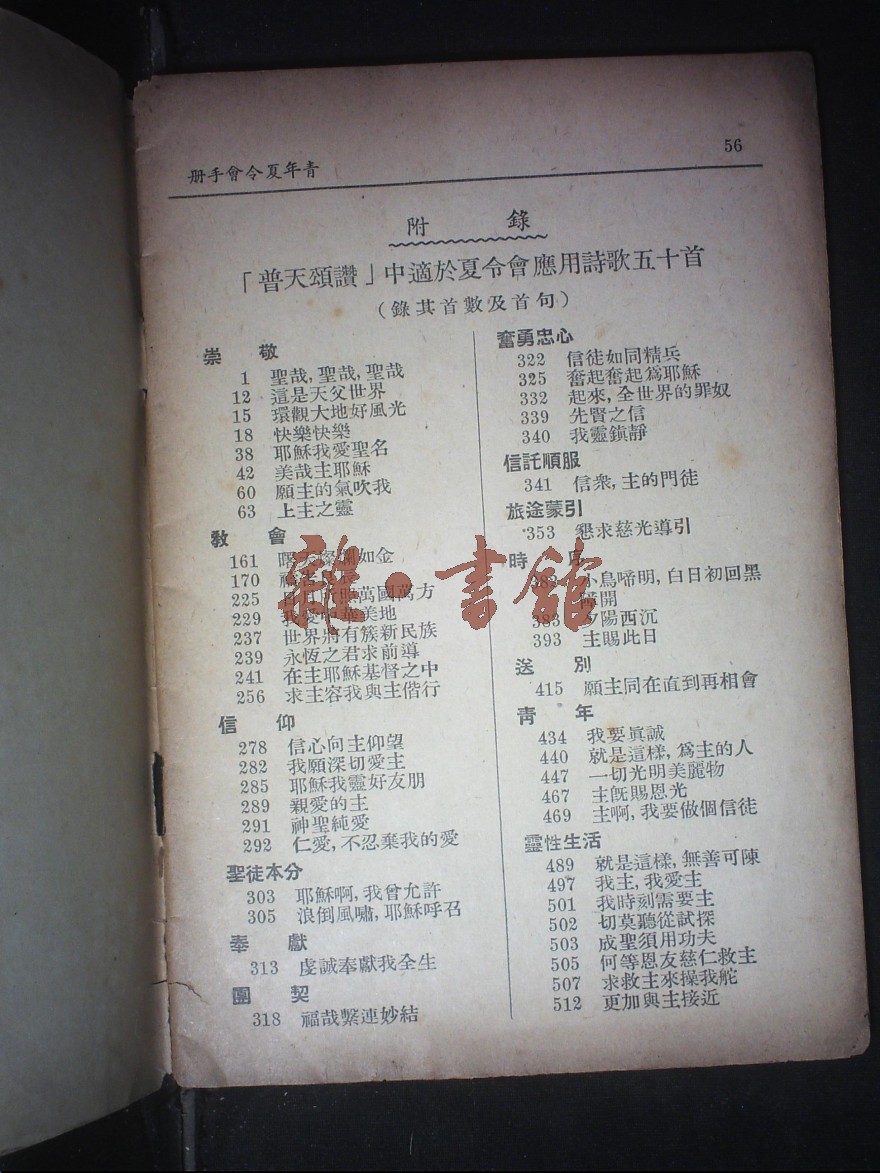 56
册手會令夏年青
附 錄
「普天頌讚」中適於夏令會應用詩歌五十首
（錄其首數及首句）
崇 敬
1 聖哉，聖哉，聖哉
12 這是天父世界
15 環觀大地好風光
18 快樂快樂
38 耶穌我愛聖名
42 美哉主耶穌
60 願主的氣吹我
63 上主之靈
教 會
161 曙天燦爛如金
170
225 萬國萬方
229 我愛中華美地
237 世界將有簇新民族
239 永恆之君求前導
241 在主耶穌基督之中
256 求主容我與主偕行
信 仰
278 信心向主仰望
282 我願深切愛主
285 耶穌我靈好友朋
289 親愛的主
291 神聖純愛
292 仁愛，不忍棄我的愛
聖徒本分
303 耶穌啊，我曾允許
305 浪倒風嘯，耶穌呼召
奉 獻
313 虔誠奉獻我全生
團 契
318 福哉繫連妙結
奮勇忠心
322 信徒如同精兵
325 奮起奮起爲耶穌
332 起來，全世界的罪奴
339 先賢之信
340 我靈鎮靜
信託順服
341 信衆，主的門徒
旅途蒙引
353 懇求慈光導引
時
382 小鳥啼明，白日初回黑
開
383 夕陽西沉
393 主賜此日
送 別
415 願主同在直到再相會
青 年
434 我要眞誠
440 就是這樣，爲主的人
447 一切光明美麗物
467 主旣賜恩光
469 主啊，我要做個信徒
靈性生活
489 就是這樣，無善可陳
497 我主，我愛主
501 我時刻需要主
502 切莫聽從試探
503 成聖須用功夫
505 何等恩友慈仁救主
507 求救主來操我舵
512 更加與主接近
雜·書館